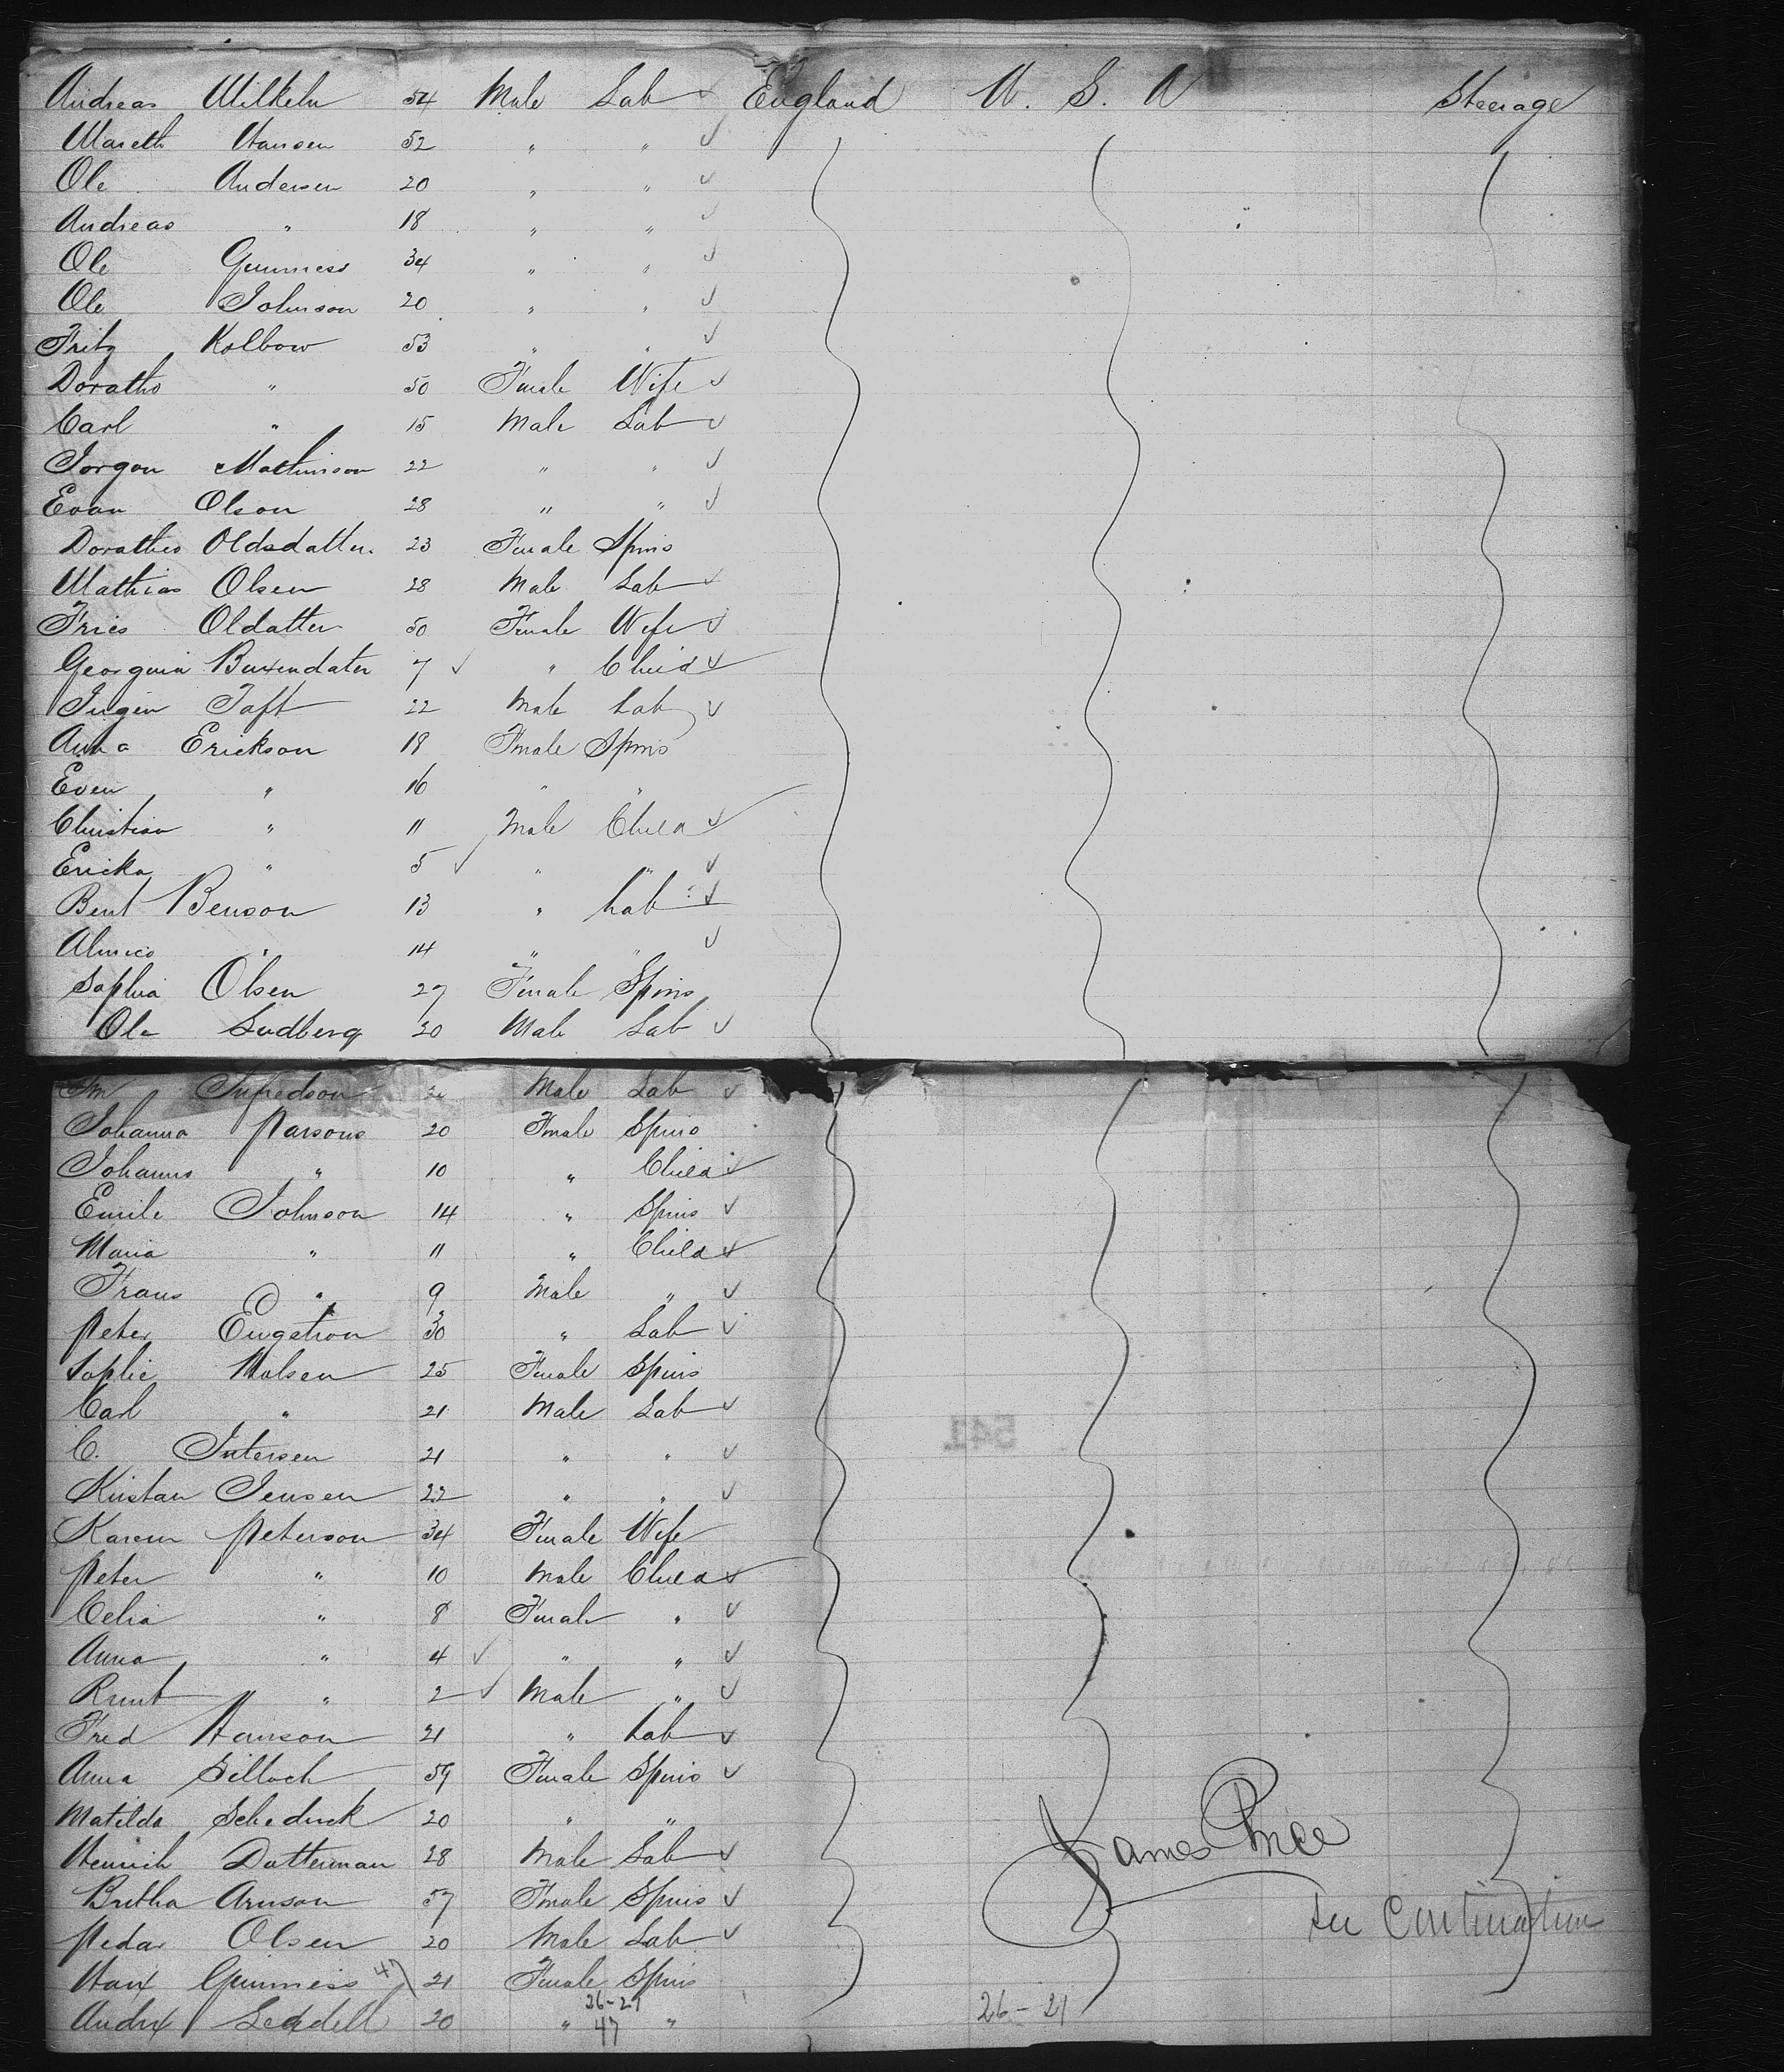 Andreas Wilkeln 54 Male Lab ✓ England U. S. A Steerage
Mareth Hansen 52 " " ✓
Ole Andersen 20 " " ✓
Andreas " 18 " " ✓
Ole Gunness 34 " " ✓
Ole Johnson 20 " " ✓
Fritz Kolbow 53 " " ✓
Doratho " 50 Female Wife ✓
Carl " 15 Male Lab ✓
Jorgon Mathinson 22 " " ✓
Evan Olson 28 " " ✓
Dorathea Oldsdatter 23 Female Spins
Mathias Olsen 28 Male Lab ✓
Fries Oldatter 50 Female Wife ✓
Georgina 7 ✓ " Child ✓
Taft 22 Male Lab ✓
Anna Erickson 18 Female Spins
Even " 16 " "
Christian " 11 Male Child ✓
Ericka " 5 ✓ " " ✓
Bent Benson 13 " Lab ✓
" 14 " " ✓
Sophia Olsen 27 Female Spins
Ole Ludberg 20 Male Lab ✓
Male Lab ✓
Johanna Parsons 20 Female Spins
Johanns " 10 " Child ✓
Emile Johnson 14 " Spins ✓
Maria " 11 " Child ✓
Frans " 9 Male " ✓
Peter Engstrom 30 " Lab ✓
Sophie Halsen 25 Female Spins
Carl " 21 Male Lab ✓
C. 21 " " ✓
Kristan Jensen 22 " " ✓
Karen Peterson 34 Female Wife
Peter " 10 Male Child ✓
Celia " 8 Female " ✓
Anna " 4 ✓ " " ✓
" 2 ✓ Male " ✓
Fred Hanson 21 " Lab ✓
Anna Silloch 59 Female Spins ✓
Matilda 20 " "
Heinrich Datterman 28 Male Lab ✓
James Price
Britha Arnson 57 Female Spins ✓
See Continuation
Pedar Olsen 20 Male Lab ✓
Gunness 47 21 Female Spins
26-21 26-21
20 " 47 "